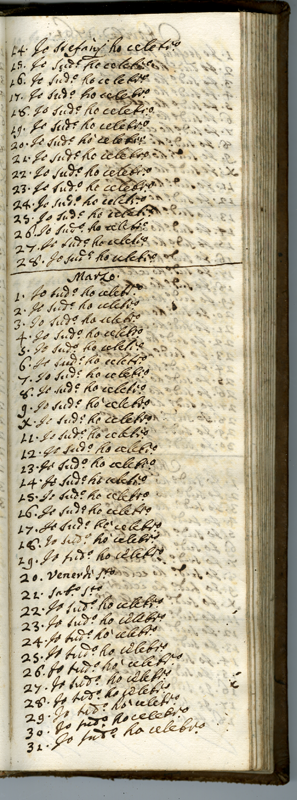 14. Io Stefani ho celebro
15. Io Sud.o ho celebro
16. Io Sud.o ho celebro
17. Io Sud.o ho celebro
18. Io Sud.o ho celebro
19. Io Sud.o ho celebro
20. Io Sud.o ho celebro
21. Io Sud.o ho celebro
22. Io Sud.o ho celebro
23. Io Sud.o ho celebro
24. Io Sud.o ho celebro
25. Io Sud.o ho celebro
26. Io Sud.o ho celebro
27. Io Sud.o ho celebro
28. Io Sud.o ho celebro
Marzo.
1. Io Sud.o ho celebro
2. Io Sud.o ho celebro
3. Io Sud.o ho celebro
4. Io Sud.o ho celebro
5. Io Sud.o ho celebro
6. Io Sud.o ho celebro
7. Io Sud.o ho celebro
8. Io Sud.o ho celebro
9. Io Sud.o ho celebro
X. Io Sud.o ho celebro
11. Io Sud.o ho celebro
12. Io Sud.o ho celebro
13. Io Sud.o ho celebro
14. Io Sud.o ho celebro
15. Io Sud.o ho celebro
16. Io Sud.o ho celebro
17. Io Sud.o ho celebro
18. Io Sud.o ho celebro
19. Io Sud.o ho celebro
20. Venerdi S.to
21. Sab.to S.to
22. Io Sud.o ho celebro
23. Io Sud.o ho celebro
24. Io Sud.o ho celebro
25. Io Sud.o ho celebro
26. Io Sud.o ho celebro
27. Io Sud.o ho celebro
28. Io Sud.o ho celebro
29. Io Sud.o ho celebro
30. Io Sud.o ho celebro
31. Io Sud.o ho celebro